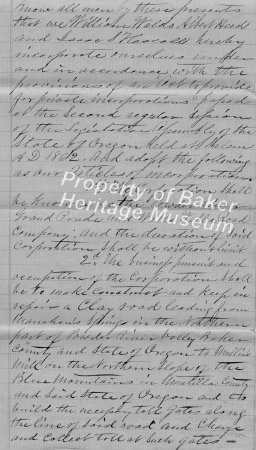 Know all men by these presents
that we William Waldo Albert Head
and Isaac S Hascall hereby
incorporate ourselves under
and in accordance with the
provisions of an act to provide
for private incorporations passed
at the Second regular Session
of the Legislative Assembly of the
State of Oregon held at Salem
A.D 1862. And adopt the following
as our Articles of incorporation
shall
be known as the
Grand Ronde
Company; and the duration of said
Corporation shall be without limit
2d. The business pursuit and
occupation of the Corporation shall
be to make construct and keep in
repair a Clay road leading from
Springs in the Northern
part of Powder River Valley Baker
County and State of Oregon to
Mill on the Northern slope of the
Blue Mountains in Umatilla County
and Said State of Oregon and to
build the necessary toll gates along
the line of said road and Charge
and collect toll at such gates —
Property of Baker
Heritage Museum